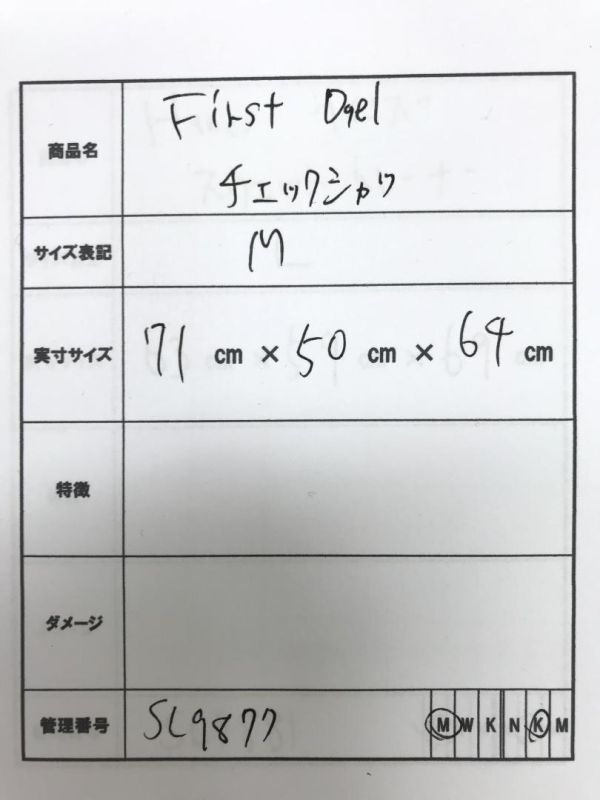 商品名 First Dgel
チェックシャツ
サイズ表記 M
実寸サイズ 71 cm × 50 cm × 64 cm
特徴
ダメージ
管理番号 SL9877 M W K N K M